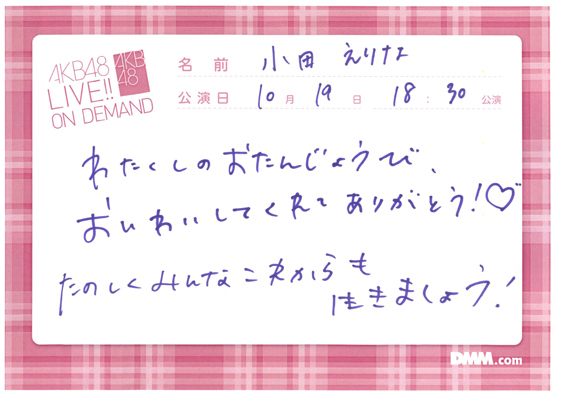 AKB48
LIVE!!
ON DEMAND
AKB
48
名前 小田えりな
公演日 10月19日 18:30公演
わたくしのおたんじょうび、
おいわいしてくれてありがとう!♡
たのしくみんなこれからも
生きましょう!
DMM.com